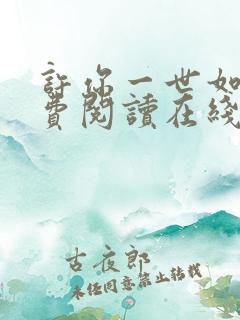 許你一世如
費閱讀在綫
古夜郎
未經同意禁止轉載